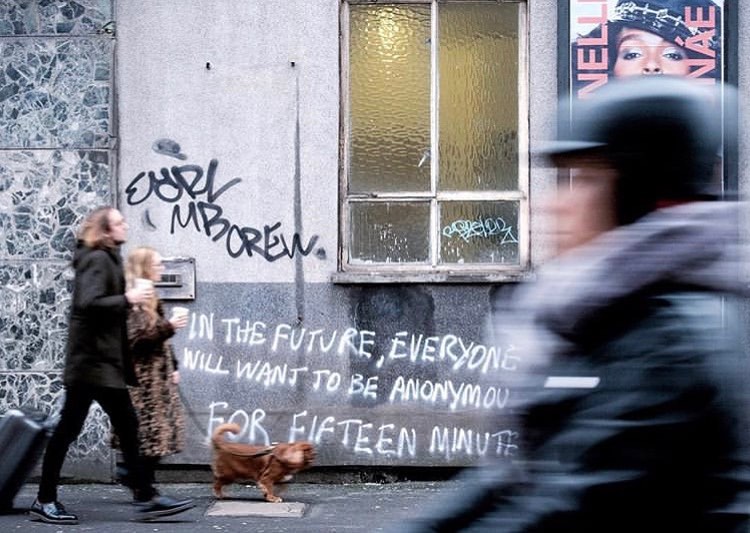 NELL
NÁE
EARL
MB CREW.
IN THE FUTURE, EVERYONE
WILL WANT TO BE ANONYMOU
FOR FIFTEEN MINUTE